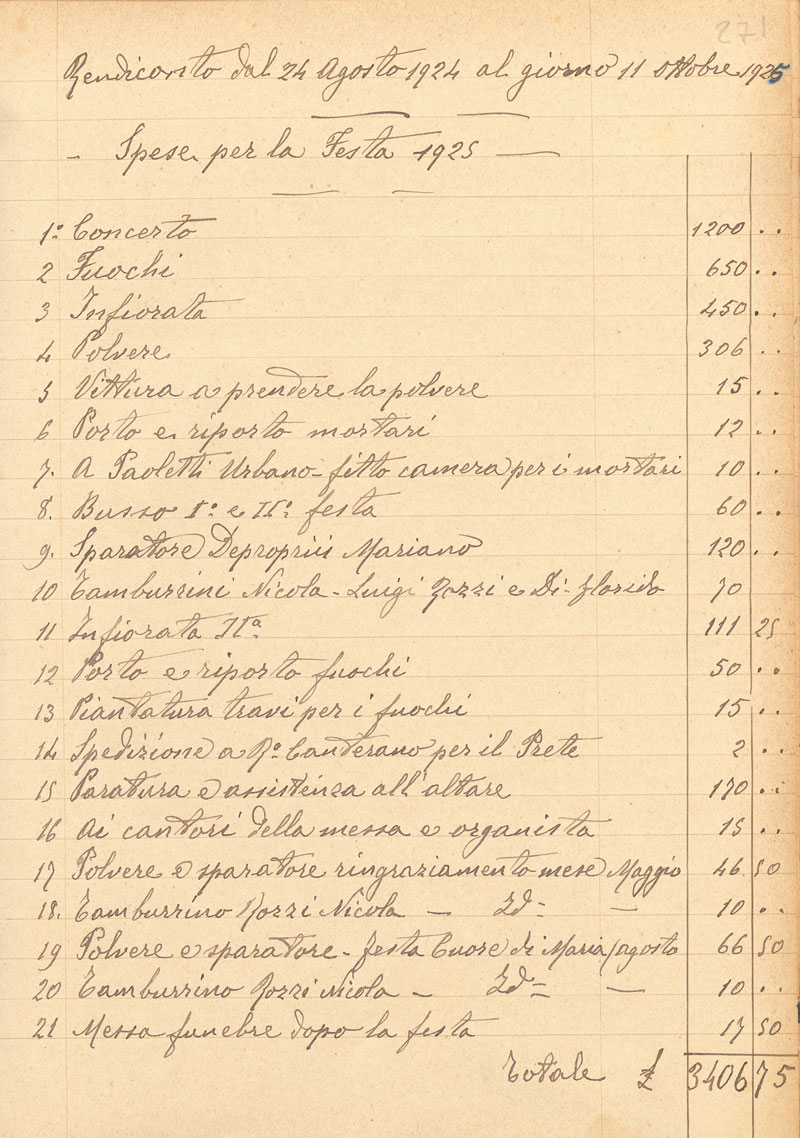 271
Rendiconto dal 24 Agosto 1924 al giorno 11 Ottobre 1925
Spese per la Festa 1925
1° Concerto 1200 ..
2 Fuochi 650 ..
3 Infiorata 450 ..
4 Polvere 306 ..
5 Vittura a prendere la polvere 15 ..
6 Porto e riporto mortari 12 ..
7. A Paoletti Urbano - fitto camera per i mortari 10 ..
8. Busso I° e II° festa 60 ..
9. Sparatore Depropriis Mariano 120 ..
10 Tamburrini Nicola - Luigi Rozzi e Di-florido 70
11 Infiorata IIª 111 25
12 Porto e riporto fuochi 50 ..
13 Piantatura travi per i fuochi 15 ..
14 Spedizione a Rª Canterano per il Prete 2 ..
15 Paratura e assistenza all'altare 170 ..
16 Ai cantori della messa e organista 15 ..
17 Polvere e sparatore ringraziamento mese Maggio 46 50
18. Tamburrino Rozzi Nicola - Id= - 10 ..
19 Polvere e sparatore - festa Cuore di Maria/agosto 66 50
20 Tamburrino Rozzi Nicola - Id= - 10 ..
21 Messa funebre dopo la festa 17 50
Totale £ 3406 75